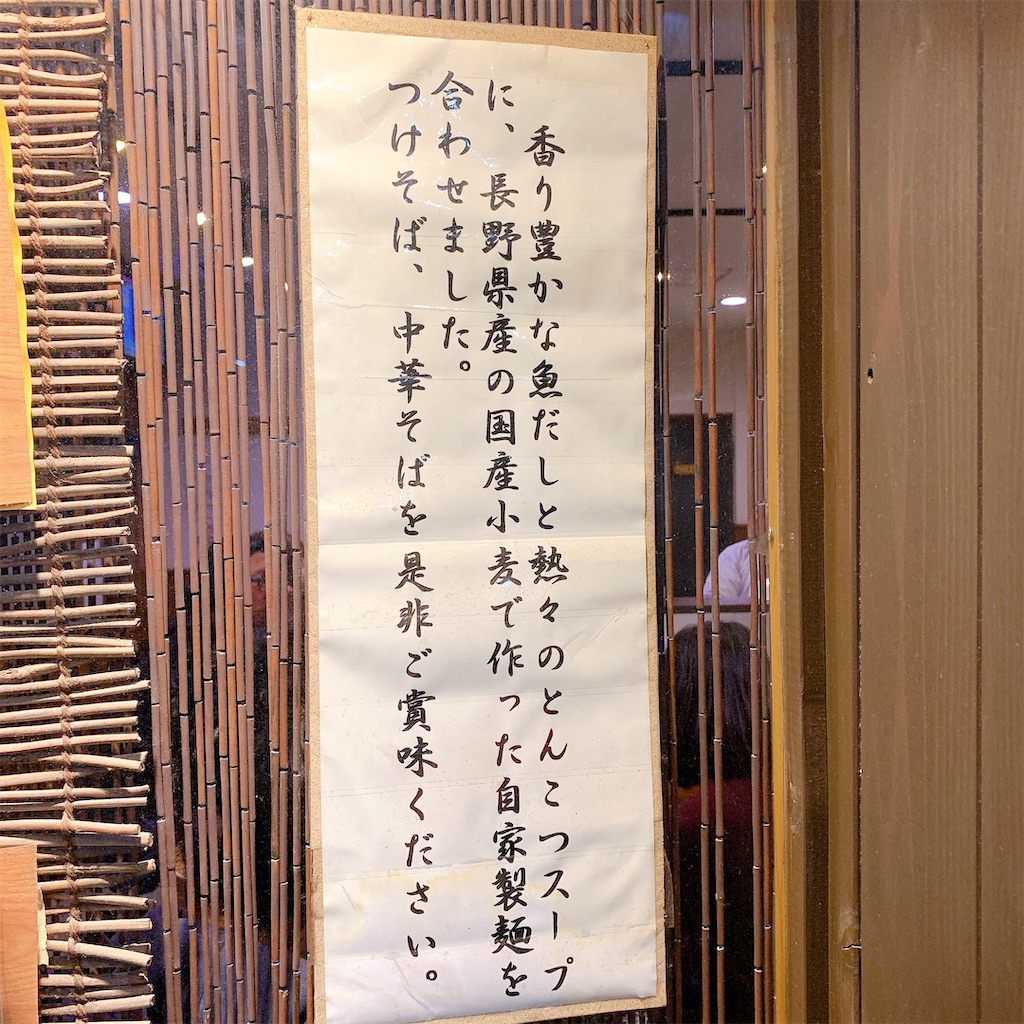 香り豊かな魚だしと熱々のとんこつスープ
に、長野県産の国産小麦で作った自家製麺を
合わせました。
つけそば、中華そばを是非ご賞味ください。